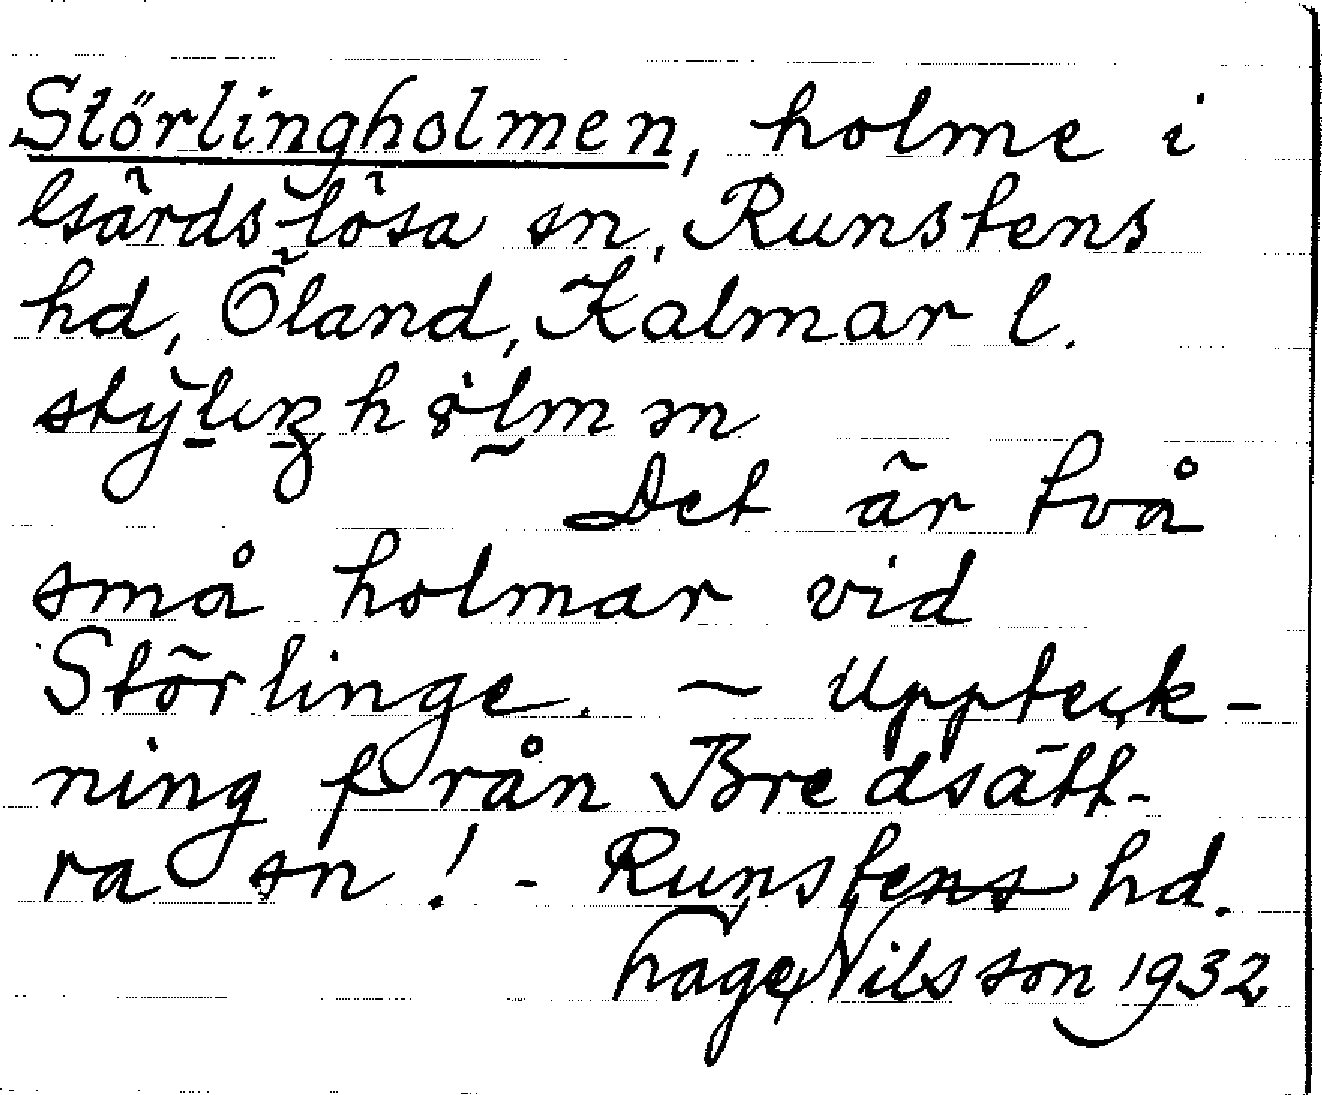 Störlingholmen, holme i
Gärdslösa sn, Runstens
hd, Öland, Kalmar l.
Det är två
små holmar vid
Störlinge. – Uppteck-
ning från Bredsätt-
ra sn! - Runstens hd.
Tage Nilsson 1932